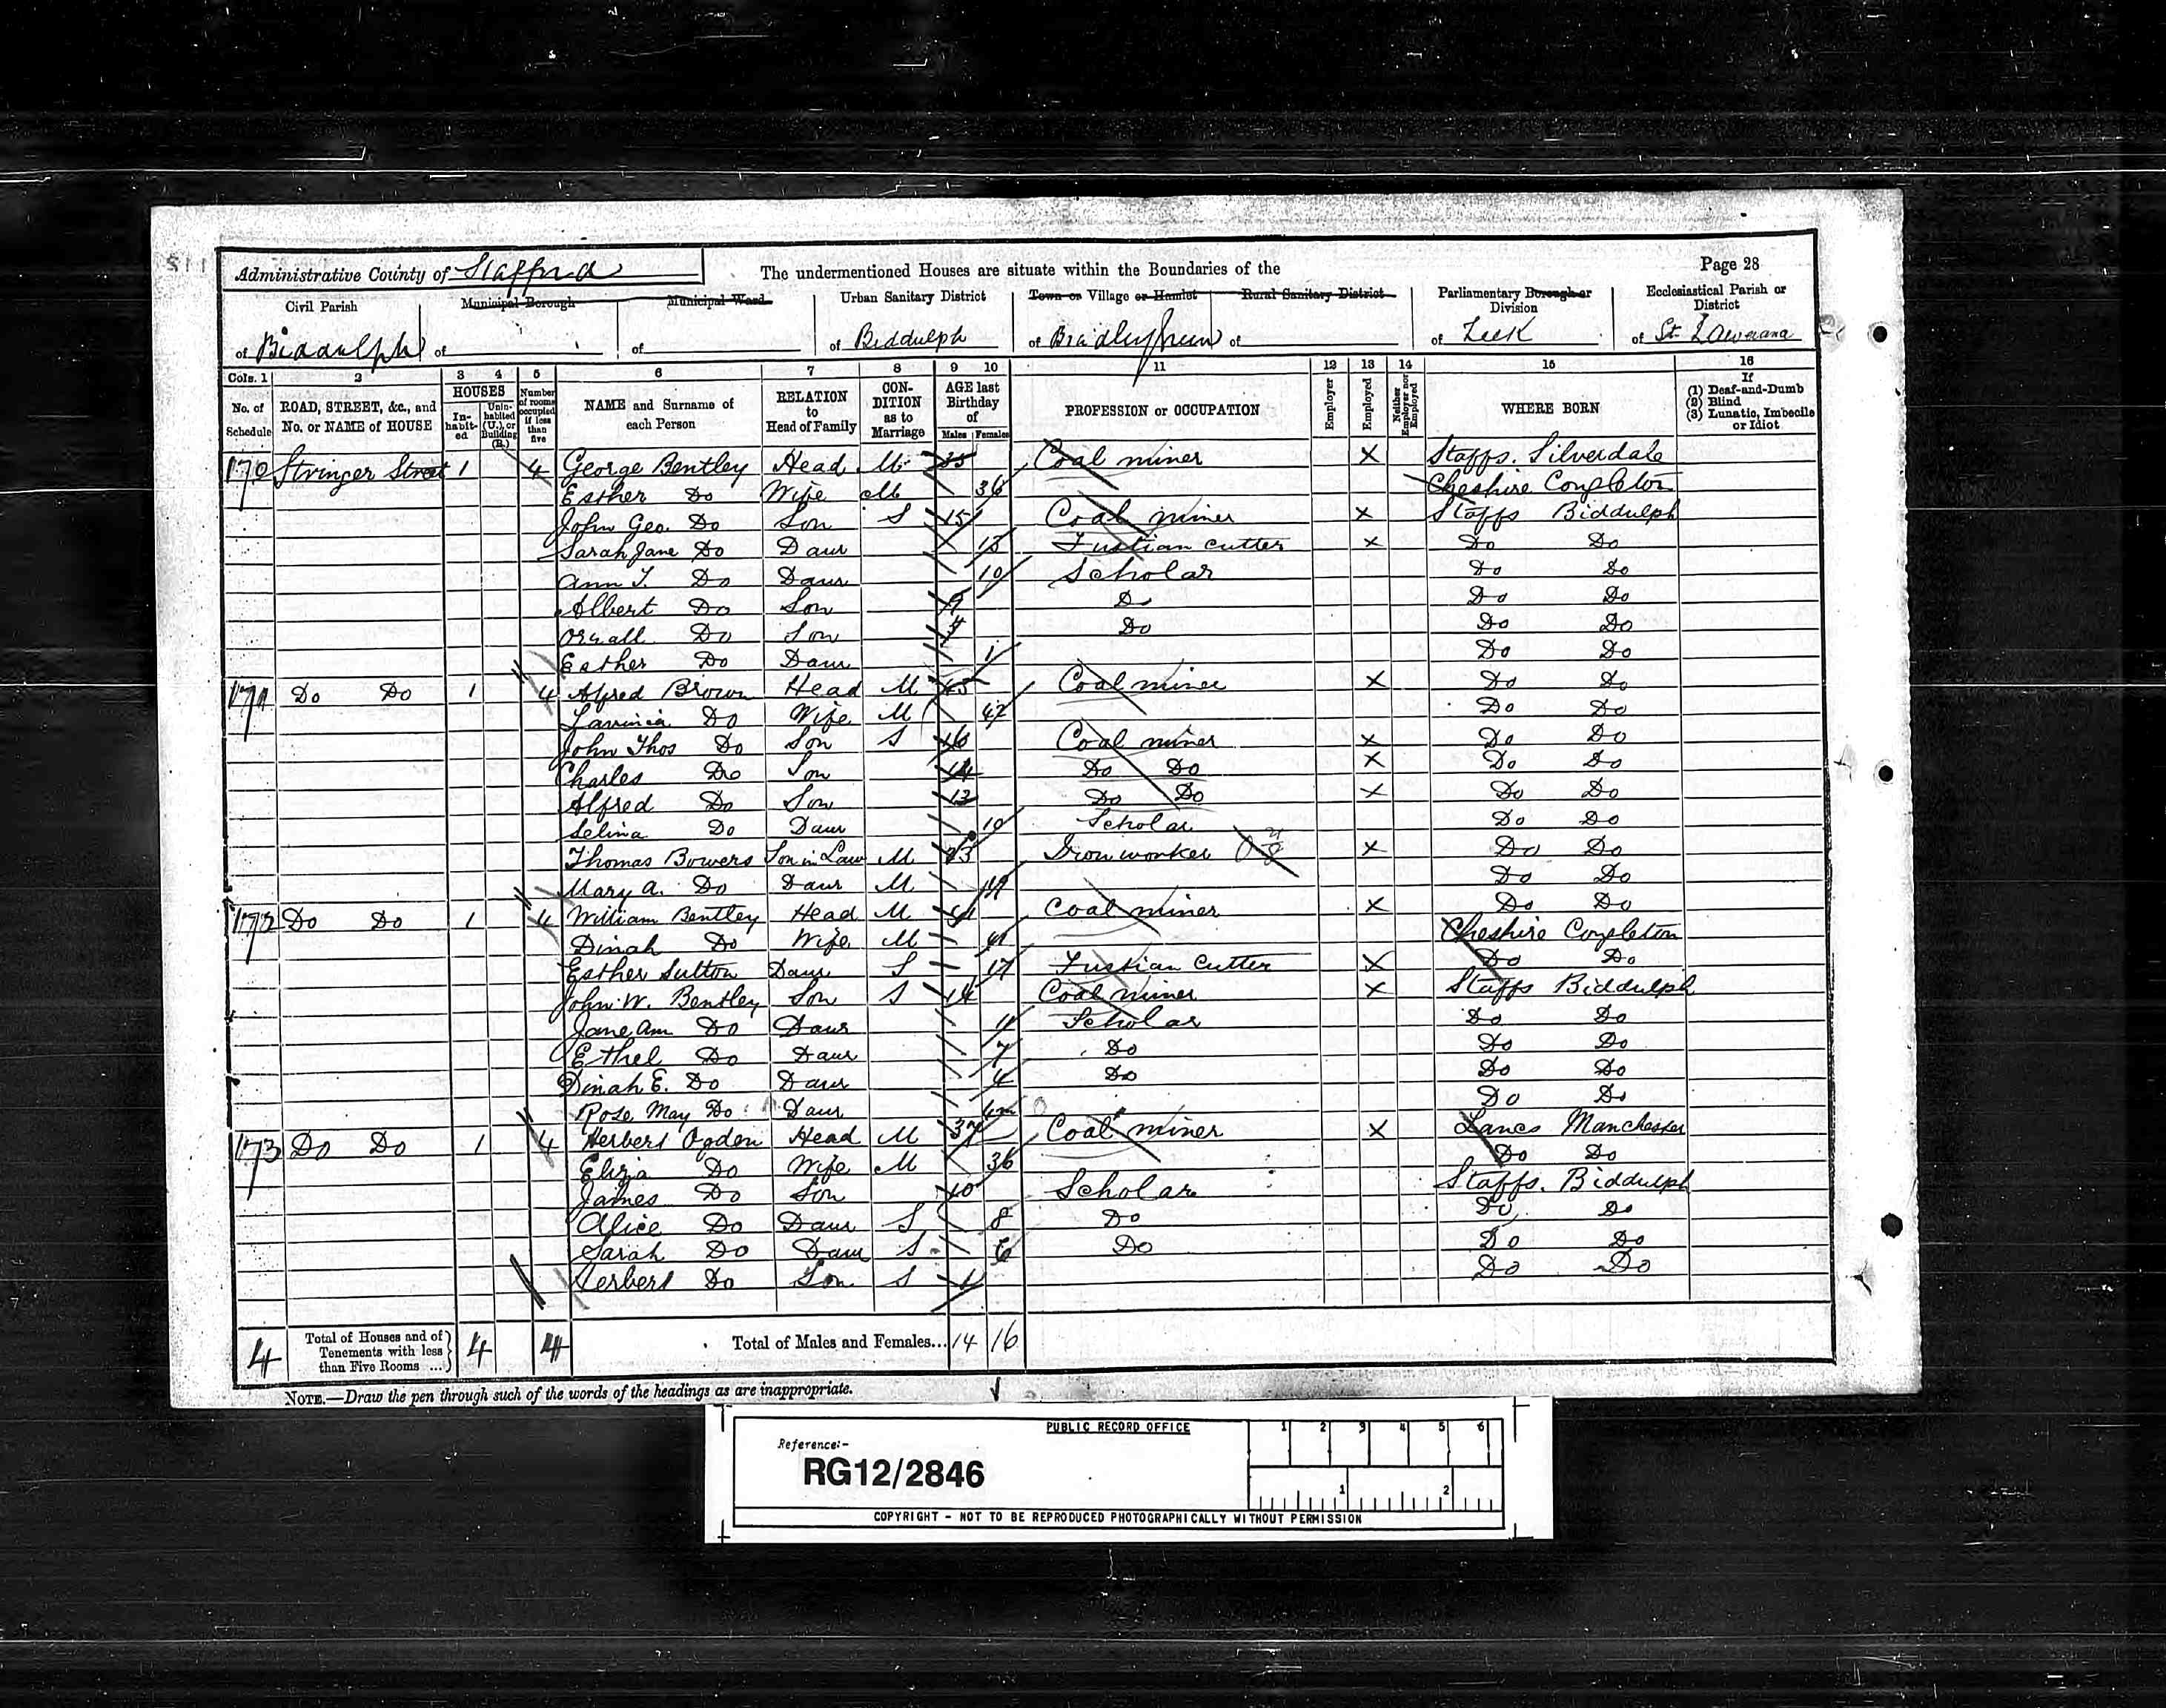 Administrative County of Stafford The undermentioned Houses are situate within the Boundaries of the Page 28
Civil Parish Municipal Borough Municipal Ward Urban Sanitary District Town or Village or Hamlet Rural Sanitary District Parliamentary Borough or Division Ecclesiastical Parish or District
of Biddulph of of of Biddulph of Bradley Green of of Leek of St.
Cols. 1 2 3 4 5 6 7 8 9 10 11 12 13 14 15 16
No. of Schedule ROAD, STREET, &c., and No. or NAME of HOUSE HOUSES In-habit-ed Unin-habited (U.), or Building (B.) Number of rooms occupied if less than five NAME and Surname of each Person RELATION to Head of Family CON-DITION as to Marriage AGE last Birthday of Males Females PROFESSION or OCCUPATION Employer Employed Neither Employer nor Employed WHERE BORN If (1) Deaf-and-Dumb (2) Blind (3) Lunatic, Imbecile or Idiot
170 Stringer Street 1 4 George Bentley Head M 35 Coal miner X Staffs. Silverdale
Esther Do Wife M 36 Cheshire Congleton
John Geo. Do Son S 15 Coal miner X Staffs Biddulph
Sarah Jane Do Daur 13 Fustian Cutter X Do Do
Ann T. Do Daur 10 Scholar Do Do
Albert Do Son 9 Do Do Do
Do Son 4 Do Do Do
Esther Do Daur 1 Do Do
171 Do Do 1 4 Alfred Brown Head M 45 Coal miner X Do Do
Lavinia Do Wife M 42 Do Do
John Thos Do Son S 16 Coal miner X Do Do
Charles Do Son 14 Do Do X Do Do
Alfred Do Son 13 Do Do X Do Do
Selina Do Daur 10 Scholar Do Do
Thomas Bowers Son in Law M 23 Iron worker X Do Do
Mary A. Do Daur M 19 Do Do
172 Do Do 1 4 William Bentley Head M Coal miner X Do Do
Dinah Do Wife M 41 Cheshire Congleton
Esther Sutton Daur S 17 Fustian Cutter X Do Do
John W. Bentley Son S 14 Coal miner X Staffs Biddulph
Jane Ann Do Daur 11 Scholar Do Do
Ethel Do Daur 7 Do Do Do
Dinah E. Do Daur 4 Do Do Do
Rose May Do Daur Do Do
173 Do Do 1 4 Herbert Ogden Head M 37 Coal miner X Lancs Manchester
Eliza Do Wife M 36 Do Do
James Do Son 10 Scholar Staffs. Biddulph
Alice Do Daur S 8 Do Do Do
Sarah Do Daur S 6 Do Do Do
Herbert Do Son S 1 Do Do
4 Total of Houses and of Tenements with less than Five Rooms ... 4 4 Total of Males and Females... 14 16
NOTE.—Draw the pen through such of the words of the headings as are inappropriate.
PUBLIC RECORD OFFICE 1 2 3 4 5 6
Reference:-
RG12/2846
1 2
COPYRIGHT - NOT TO BE REPRODUCED PHOTOGRAPHICALLY WITHOUT PERMISSION